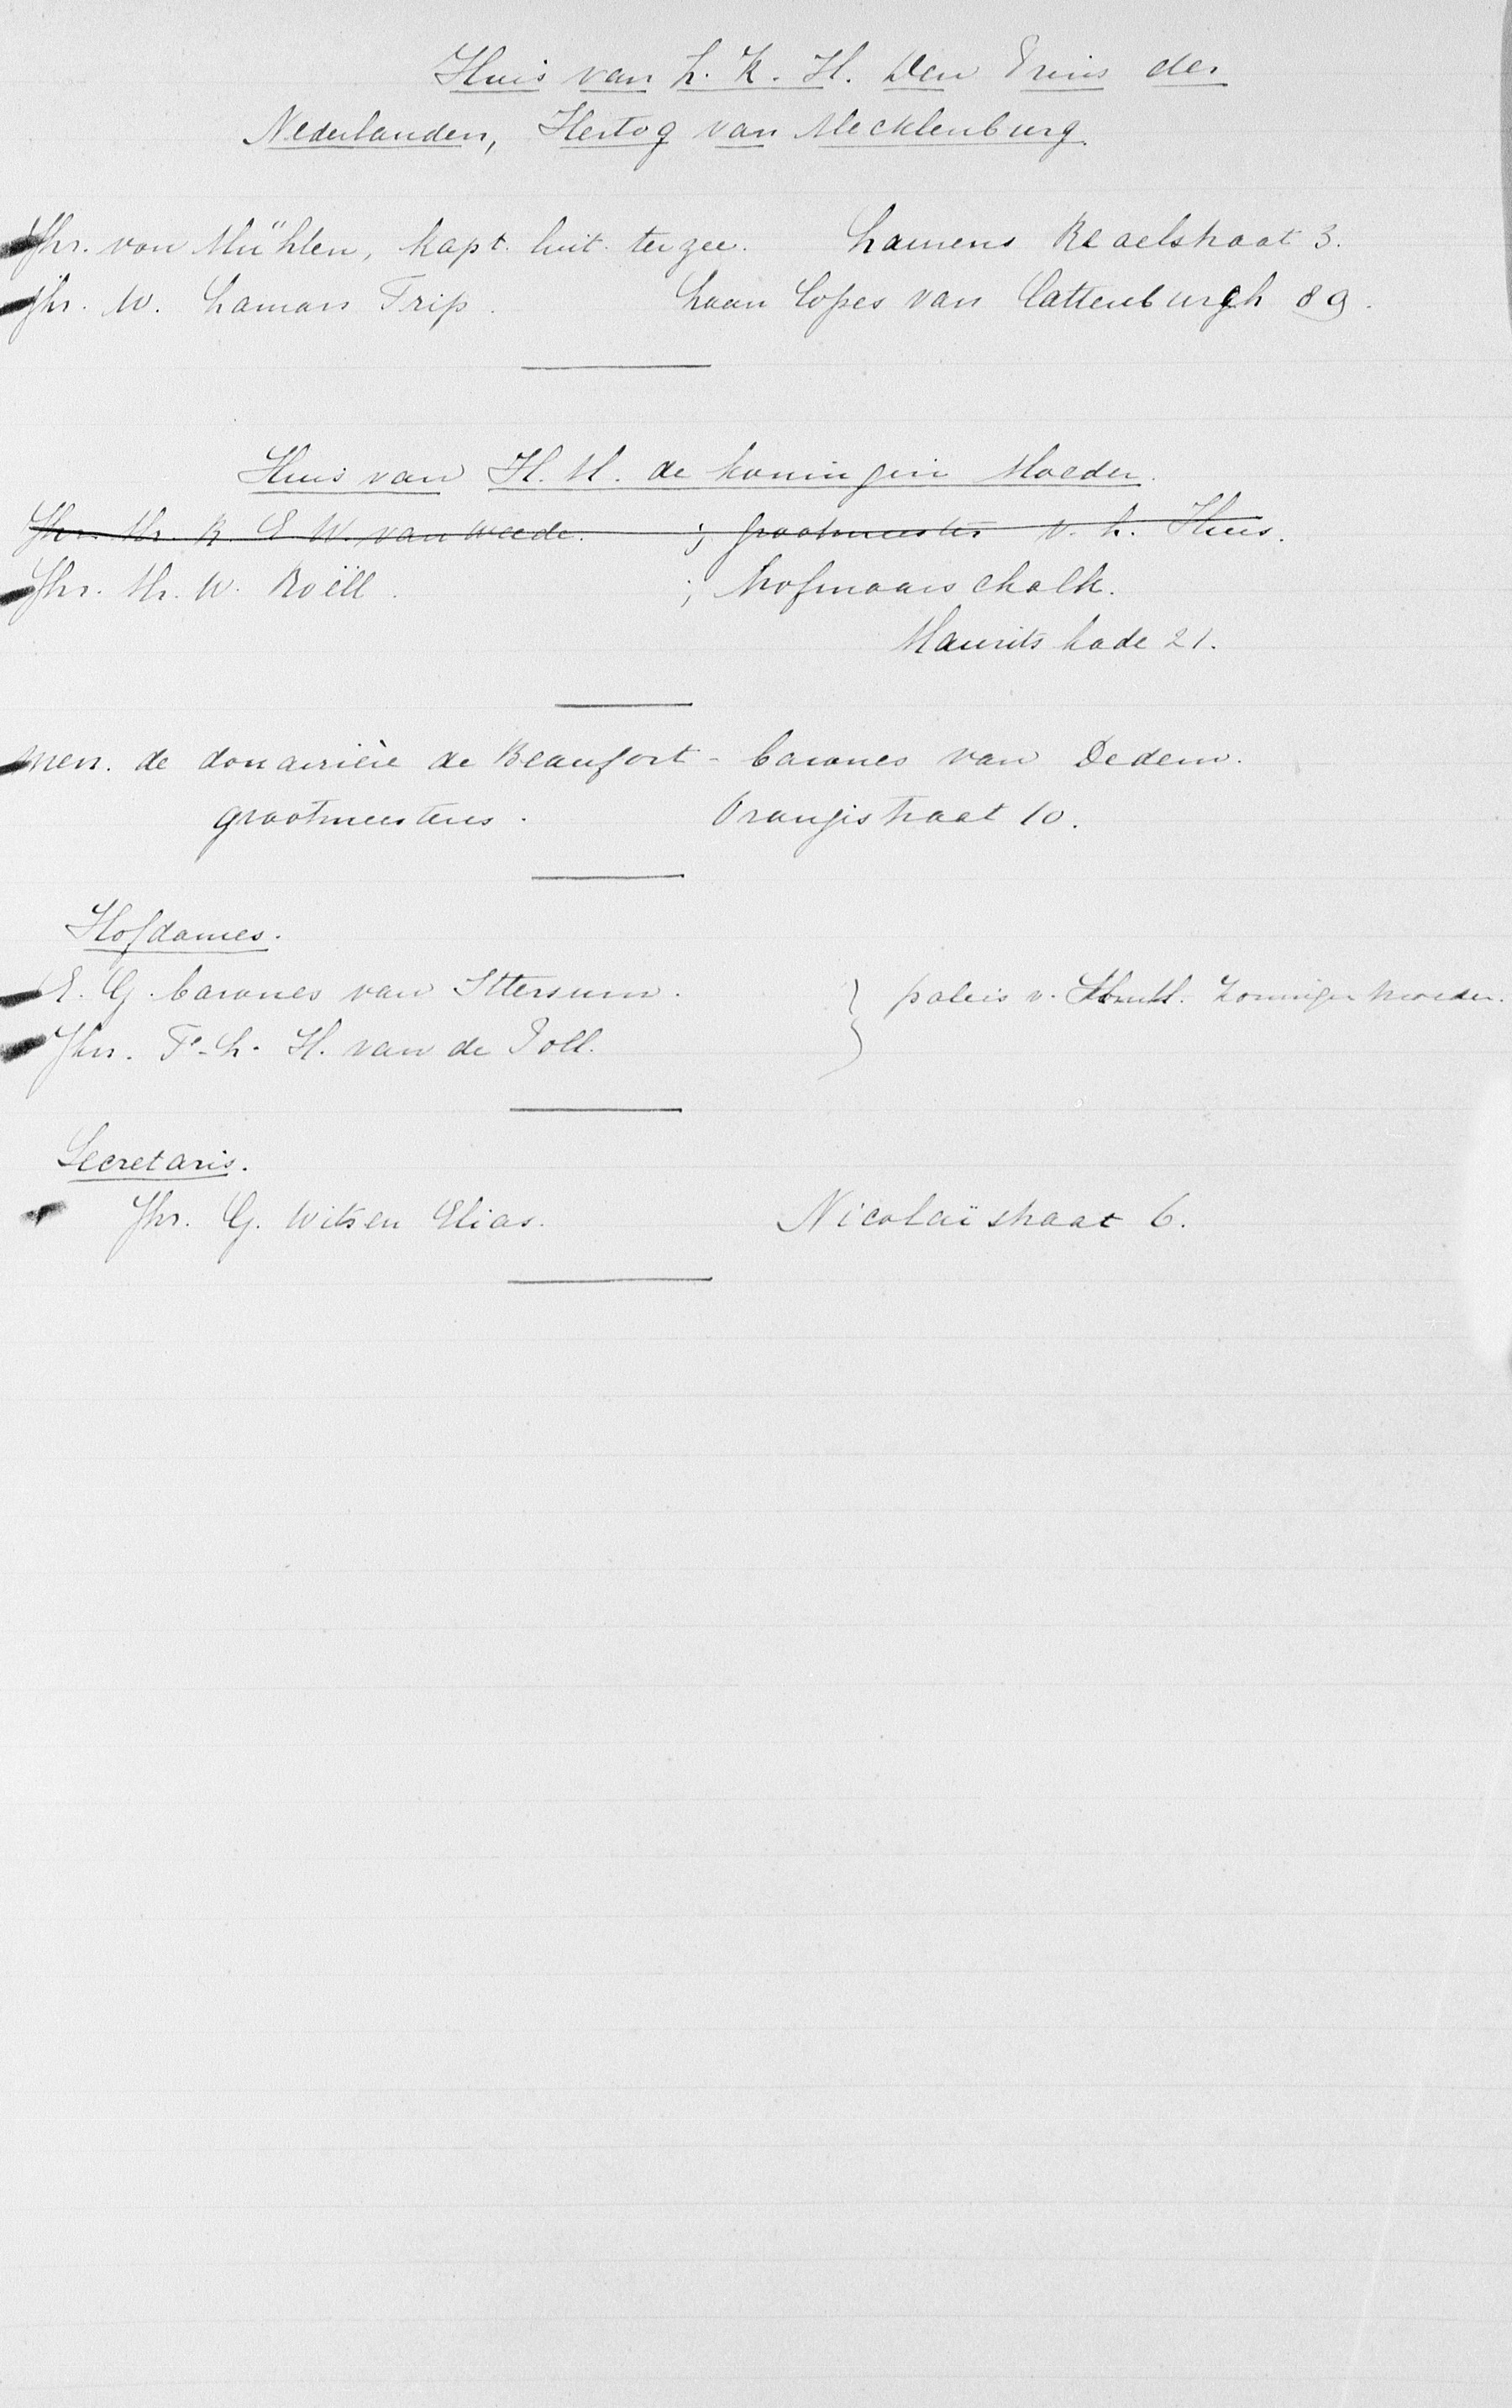 Huis van Z. K. H. Den Prins der
Nederlanden, Hertog van Mecklenburg.
Jhr. von Mühlen, kapt. luit. ter zee. Laurens Reaelstraat 3.
Jhr. W. Laman Trip. Laan Copes van Cattenburgh 89.
Huis van H. M. de Koningin Moeder.
Jhr. Mr. R. E. W. van Weede. ; grootmeester v. h. Huis.
Jhr. Mr. W. Roëll. ; hofmaarschalk.
Mauritskade 21.
Mevr. de douairière de Beaufort - barones van Dedem.
grootmeesteres. Oranjestraat 10.
Hofdames.
E. G. barones van Ittersum. } paleis v. H.M. Koningin Moeder.
Jkvr. F. L. H. van de Poll.
Secretaris.
Jhr. G. Witsen Elias. Nicolaïstraat 6.